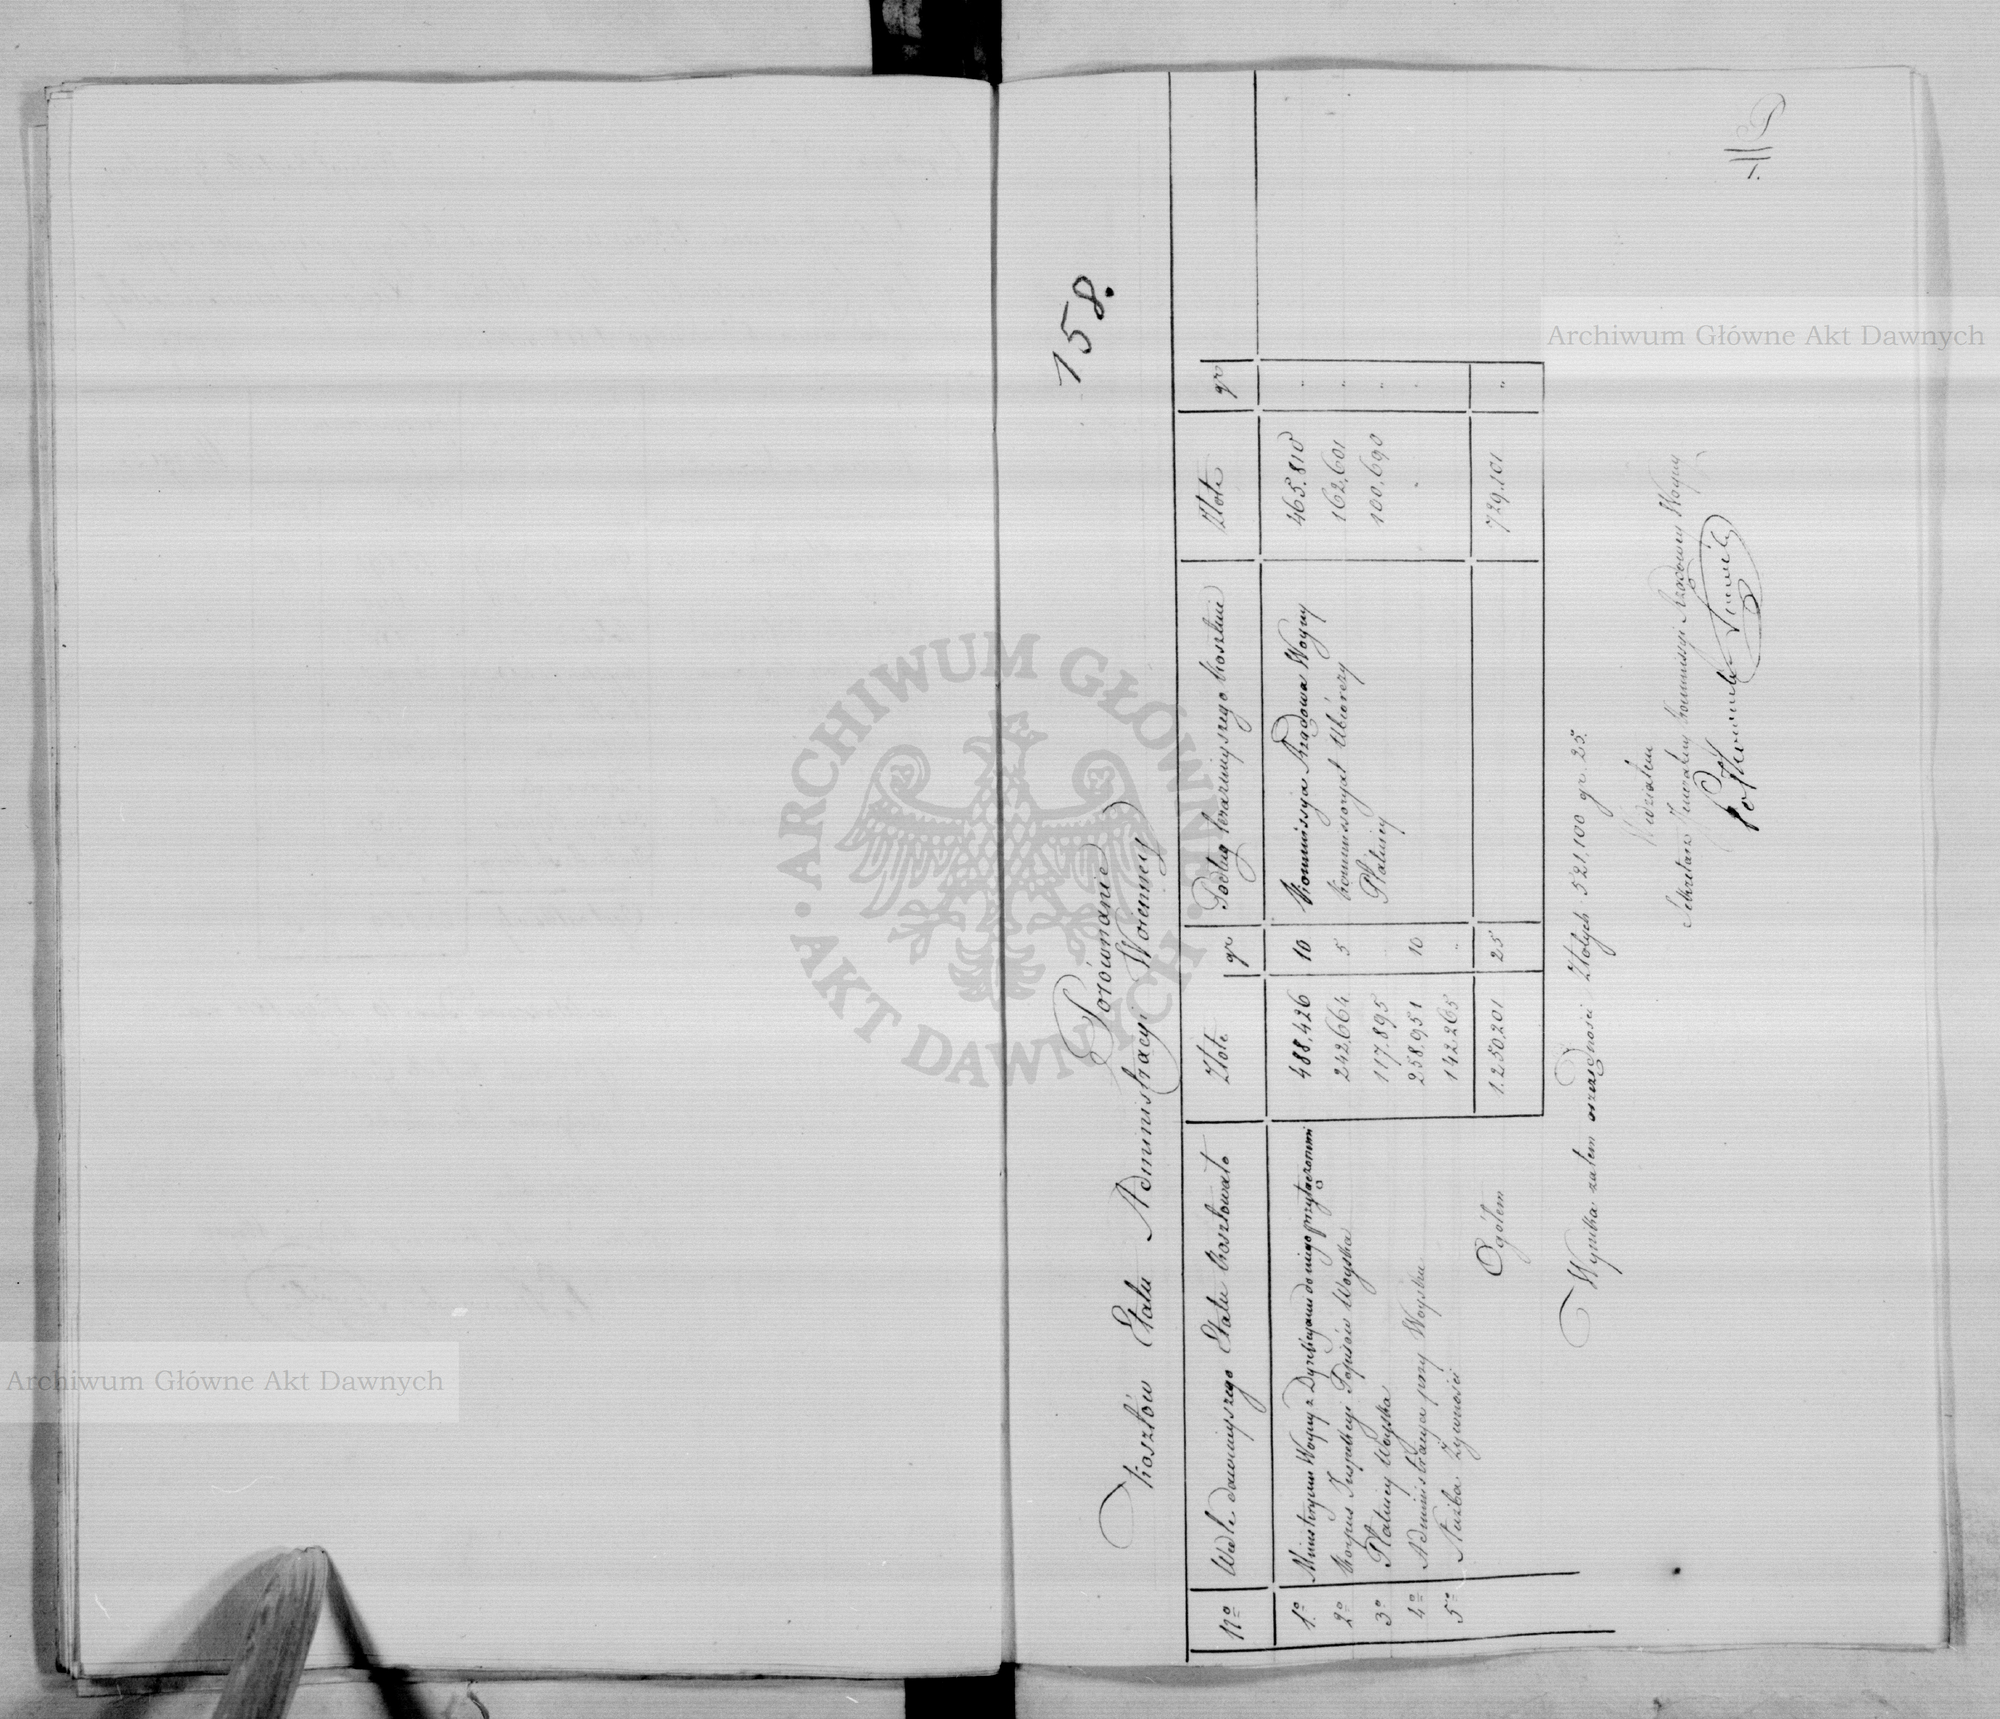 158.
Porównanie
Kosztów Etatu Administracyi Woienney
Nº Wedle dawnieyszego Etatu kosztowało Złote gr Podług teraznieyszego kosztuie Złote gr
1º Ministeryum Woyny z Dyrekcyami do niego przyłączonemi 488,426 10 Kommissya Rządowa Woyny 465.810 "
2º Korpus Inspekcyi Popisów Woyska 242,664 5 Kommissoryat Ubiorczy 162,601 "
3º Płatnicy Woyska 117.895 " Płatnicy 100,690 "
4º Administracya przy Woysku 258,951 10 " "
5º Służba Żywności 142,265 "
Ogółem 1.250,201 25 729,101 "
Wynika zatem oszczędności Złotych 521,100 gr. 25.
Widziałem
Sekretarz Jeneralny Kommissyi Rządowey Woyny
Archiwum Główne Akt Dawnych
Archiwum Główne Akt Dawnych
ARCHIWUM GŁÓWNE AKT DAWNYCH